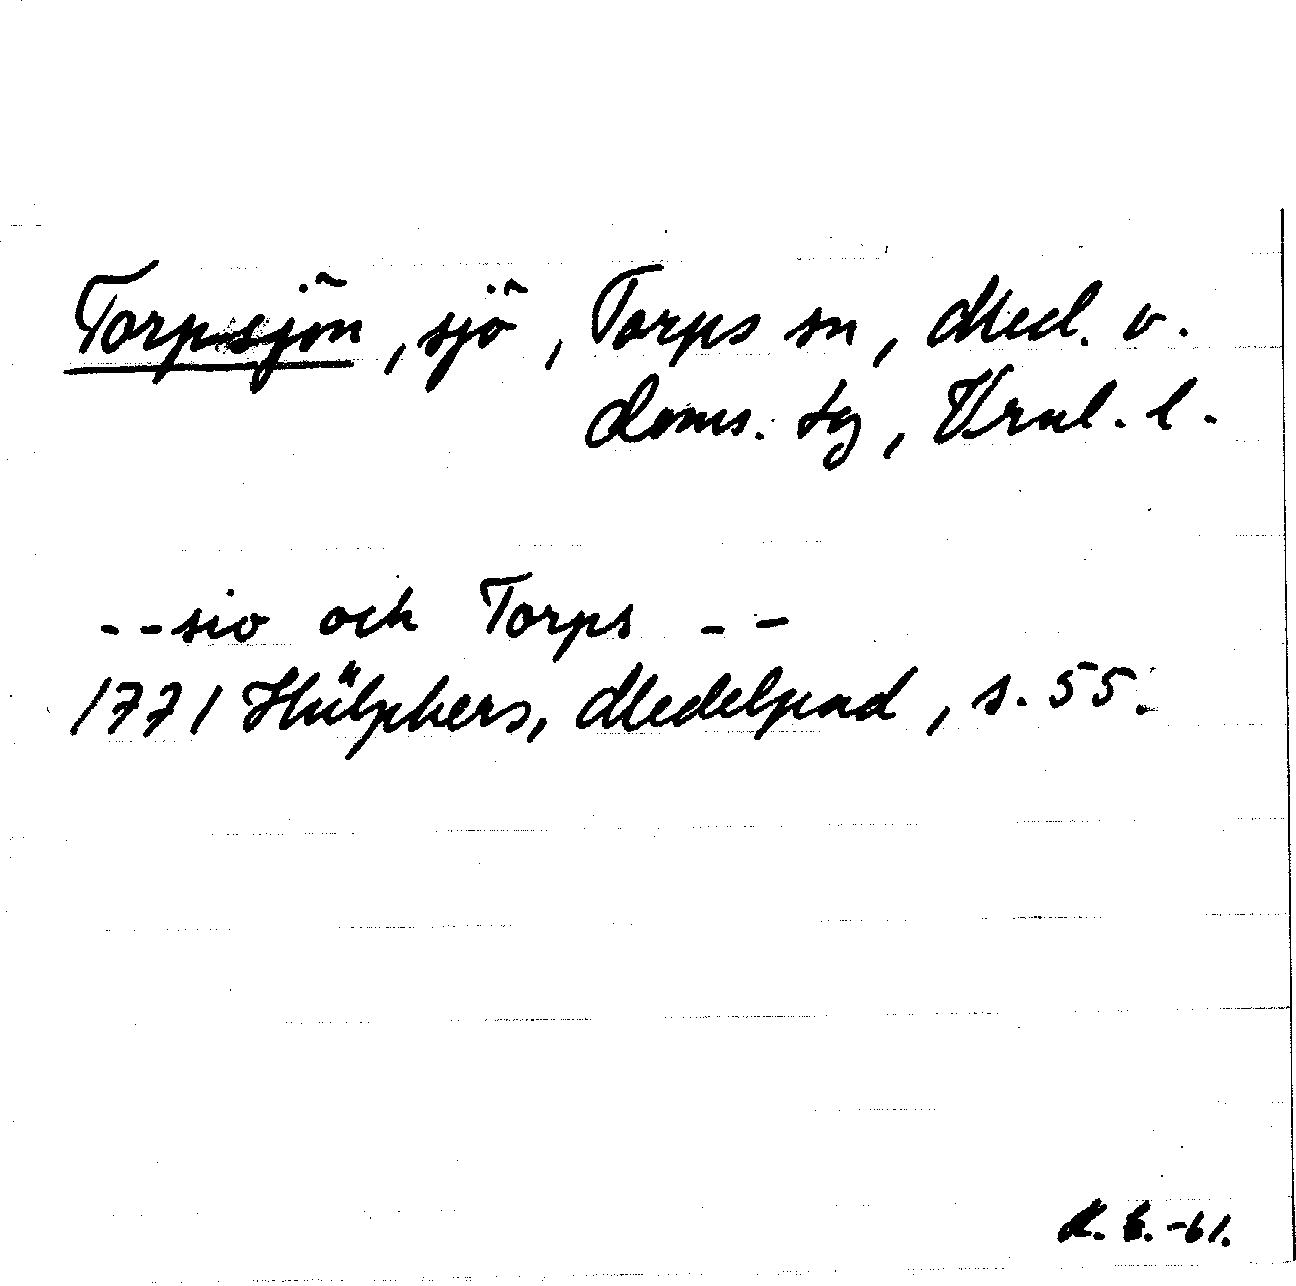 Torpsjön, sjö, Torps sn, Med. v.
doms. tg, Vrnl. l.
--sio och Torps --
1771 Hülphers, Medelpad, s. 55.
M. B. -61.